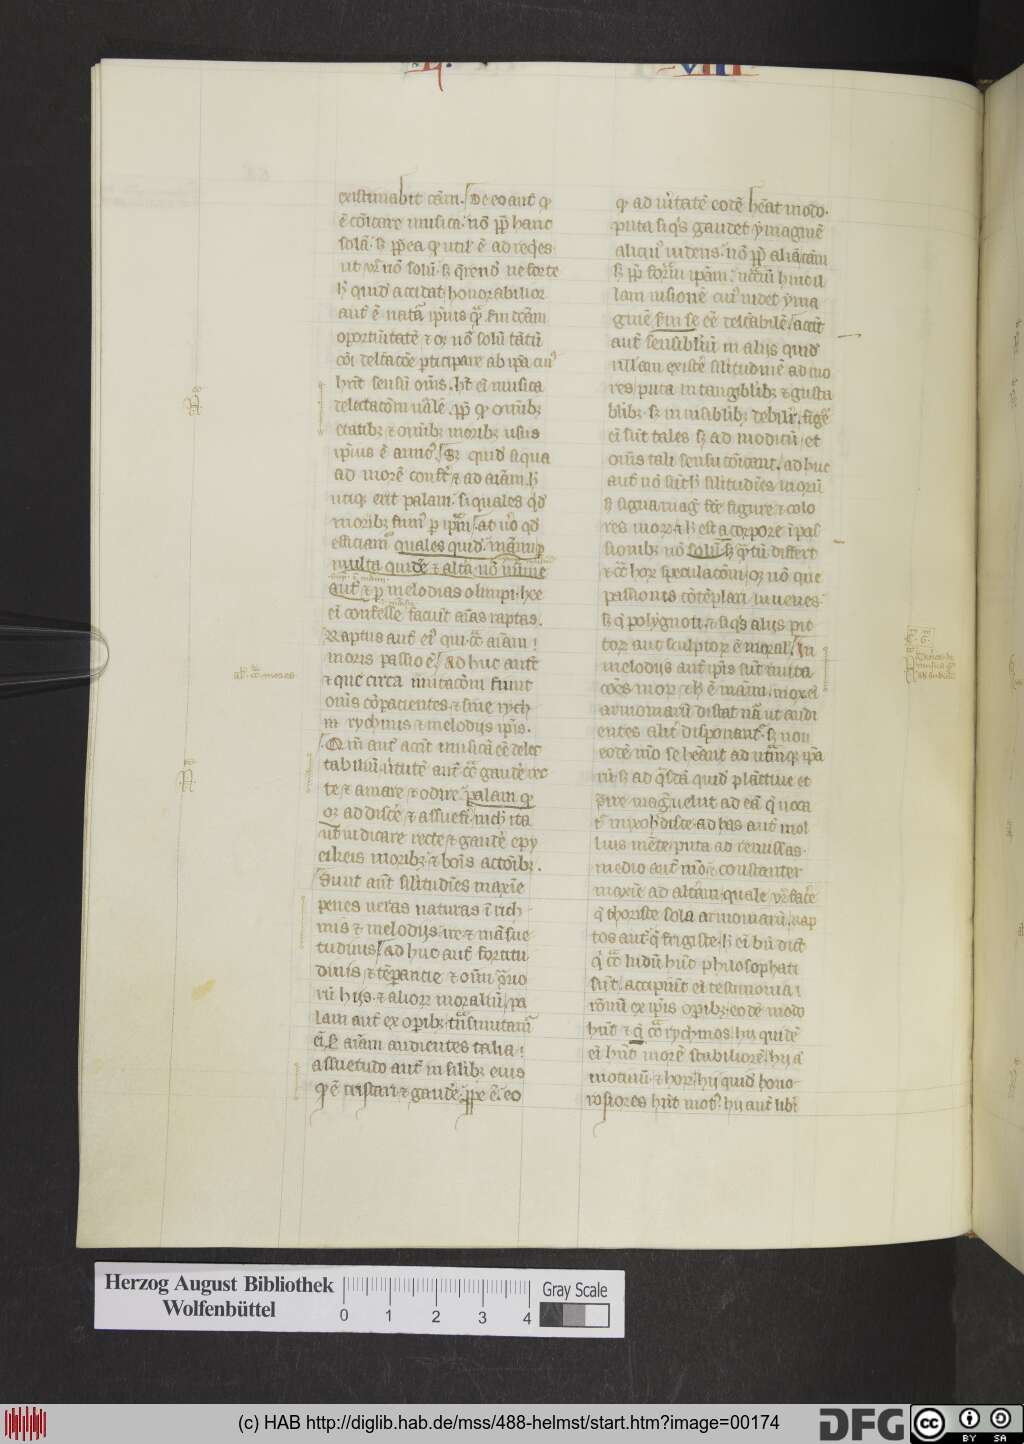 VIII
existimabit cām. De eo aut̄ qͥ
ē cōīcare musica nō ꝓp̄ hanc
solā. sꝫ ꝓp̄ea qꝫ utiƚ ē ad reqͥes
ut vr̄ nō solū. sꝫ q̄rend̄ ne forte
hͦ quid̄ accidat honorabilior
aut̄ ē nat̄a ipsius qͣꝫ s̄m dcām
oportūitatē ⁊ oꝫ nō solū tātū
cōi delc̄acōe pticipare ab ipā cuiꝰ
hn̄t sensū om̄s. hꝫ ei musica
delectacōm nālē. ꝓp̄ qͥ om̄ibꝫ
etatibꝫ ⁊ om̄ibꝫ moribꝫ usus
ipsius ē amicꝰ. Sꝫ quid̄ siqua
ad morē ⁊ ad aīam. hͦ
utiqꝫ erit palam. si quales qͥd̄
moribꝫ fimꝰ p ipām. at uͦ qꝫ
efficiam̄ quales quid̄. p
multa quidē ⁊ alia. nō mīme
aut̄ ⁊ p melodias olimpi. hee
ei confesse faciūt aīas raptas.
Raptus aut̄ eiꝰ qui cͣ aīam
moris passio ē. Ad huc aut̄
⁊ que circa imitacōm fiunt
om̄s cōpacientes ⁊ sine rych
m rychmis ⁊ melodijs ipīs.
Qm̄ aut̄ accīt musicā eē delec
tabiliū. ūtutē aut̄ cͣ gaudē rec
te ⁊ amare ⁊ odire. palam qꝫ
oꝫ addiscē ⁊ assuefi. nichͥ ita
ut iudicare recte ⁊ gaudē epy
eikeis moribꝫ ⁊ bōis actōibꝫ.
Sunt aut̄ silitudīes maxīe
penes ueras naturas ī rich
mis ⁊ melodijs. ire ⁊ māsue
tudīnis. ad huc aut̄ fortitu
dinis ⁊ tēperantie ⁊ om̄ qͥrio
rū hijs. ⁊ alioꝝ moraliū. pa
lam aut̄ ex opībꝫ. tͣnsmutam̄
ei s̄ aīam audientes talia.
assuetudo aut̄ in silibꝫ eius
qꝫ ē tristari ⁊ gaudē. ꝓpe ē. eo
qͥ ad ūitatē eodē hēat modo.
puta siqͥs gaudet ymaginē
alicuiꝰ uidens. nō ꝓp̄ aliā cām
sꝫ ꝓp̄ formā ipām. nc̄ciū huic il
lam uisionē cuiꝰ uidet yma
ginē s̄m se eē delc̄abilē. accīt
aut̄ sensibliū in alijs quid̄
nllam existē silitudinē ad mo
res. puta in tangiblibꝫ ⁊ gusta
blibꝫ. sꝫ in uisiblibꝫ debiliꝉ. figē
ei sūt tales. sꝫ ad modicū. et
om̄s tali sensu cōīcant. ad huc
aut̄ nō sūt hͦ silitudīes morū
sꝫ signa magꝭ fc̄e figure ⁊ colo
res moꝝ. ⁊ hͦ est a corpore ī pas
sionibꝫ nō solū. sꝫ qͣtū differt
⁊ cͣ hoꝝ speculacōm. oꝫ nō que
passionis cōtēplari iuuenes.
sꝫ qͥ polygnoti. ⁊ siqͥs alius pic
toꝝ aut sculptoꝝ ē moralꝭ. In
melodijs aut̄ ipīs sūt imita
cōes moꝝ. ⁊ hͦ ē mām. mox ei
armoniarū distat nā. ut audi
entes alit̄ disponant̄. sꝫ non
eodē mͦ se hēant ad utͣmqꝫ ipā
rū. sꝫ ad qͣsdā quid̄ plāctiue et
ꝯͣre magꝭ uelut ad eā q̄ uoca
tͬ mixolydisce. ad has aut̄ mol
lius mēte. puta ad remissas.
medio aut̄ mͦ ⁊ constanter
maxīe ad altām. quale vr̄ facē
q̄ dhoriste sola armoniarū. rap
tos aut̄ q̄ frigiste. hͦ ei bn̄ dicūt
qͥ cͣ ludū hūc philosophati
sūt. accipiūt ei testimonia
rōnū ex ipīs opibꝫ. eodē modo
hn̄t ⁊ q̄ cͣ rychmos. hij quidē
ei hn̄t morē stabiliorē. hij ā
motiuū. ⁊ hoꝝ hij quid̄ hono
rosiores hn̄t motꝰ. hij aut̄ libͥ
Herzog August Bibliothek
Wolfenbüttel
0 1 2 3 4
Gray Scale
(c) HAB http://diglib.hab.de/mss/488-helmst/start.htm?image=00174
DFG
cc
BY SA